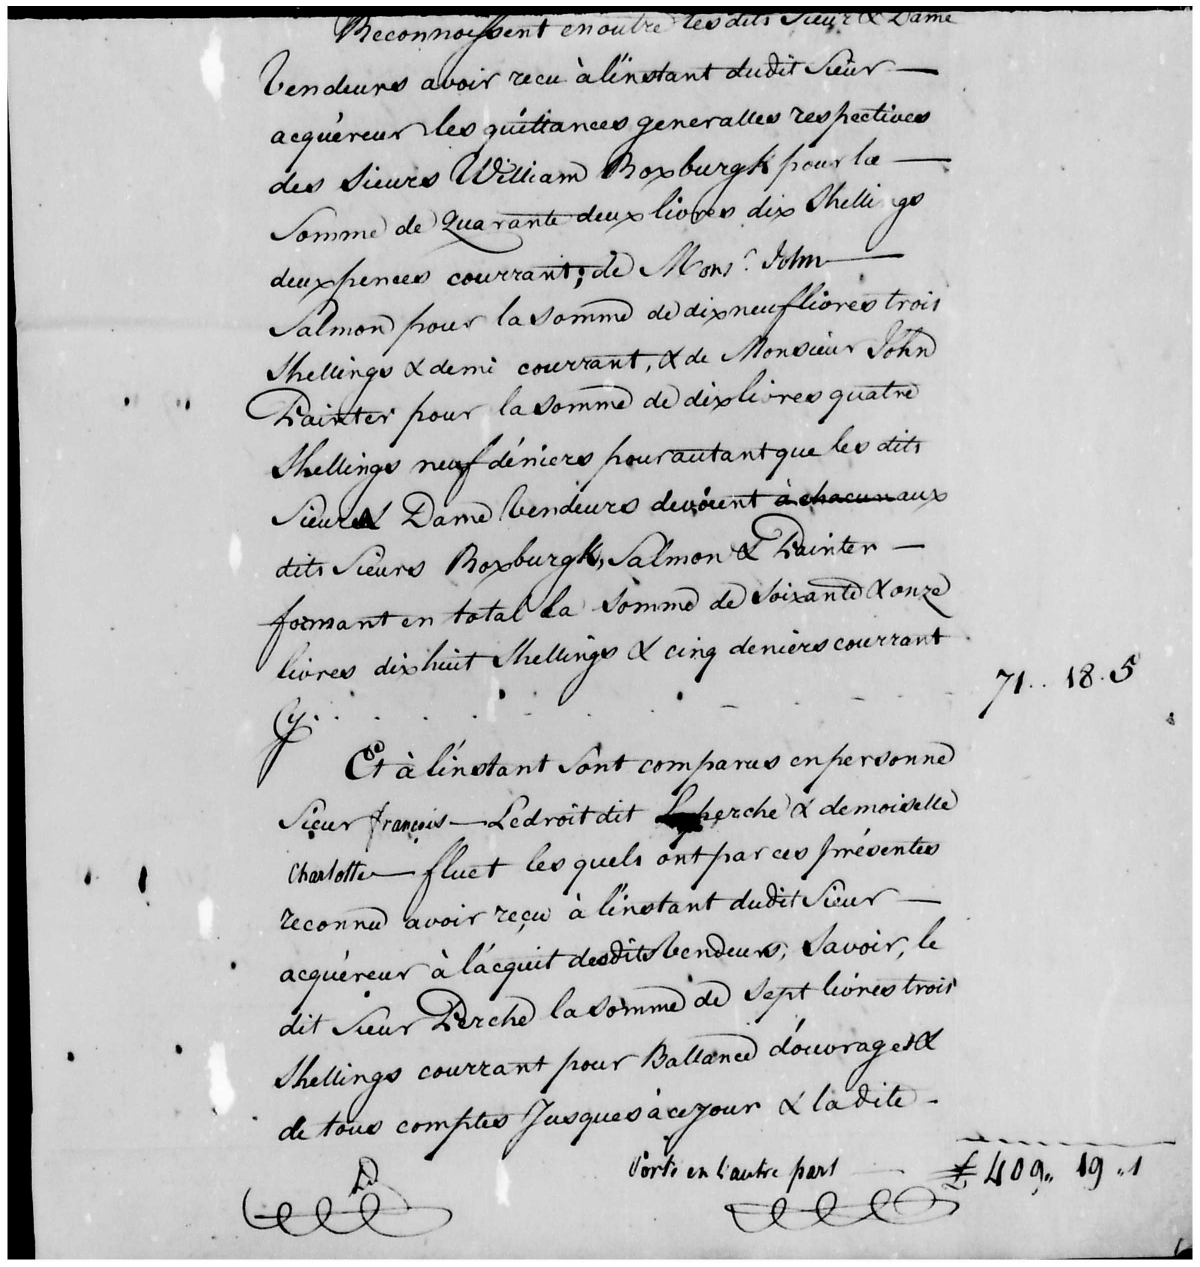 Reconnoissent en outre les dits Sieur & Dame
Vendeurs avoir recu à l'instant dudit Sieur —
acquéreur les quittances generalles respectives
des Sieurs William Roxburgh pour la —
Somme de Quarante deux livres dix Shellings
deux pences courrant; de Monsr. John —
Salmon pour la somme de dix neuf livres trois
Shellings & demi courrant, & de Monsieur John
Painter pour la somme de dix livres quatre
Shellings neuf déniers pour autant que les dits
Sieur & Dame Vendeurs devoient à chacun aux
dits Sieurs Roxburgh, Salmon & Painter —
formant en total la Somme de Soixante & onze
livres dix huit Shellings & cinq deniers courrant
Cy . . . . . . . 71 .. 18 . 5
Et à l'instant Sont comparus en personne
Sieur françois — Ledroit dit Perche & demoiselle
Charlotte — fluet les quels ont par ces présentes
reconnu avoir reçu à l'instant dudit Sieur —
acquéreur à l'acquit desdits Vendeurs, Savoir, le
dit Sieur Perche la somme de Sept livres trois
Shellings courrant pour Ballance d'ouvrages &
de tous comptes Jusques à ce jour & la dite -
Porté en l'autre part — £ 409 .. 19 .. 1